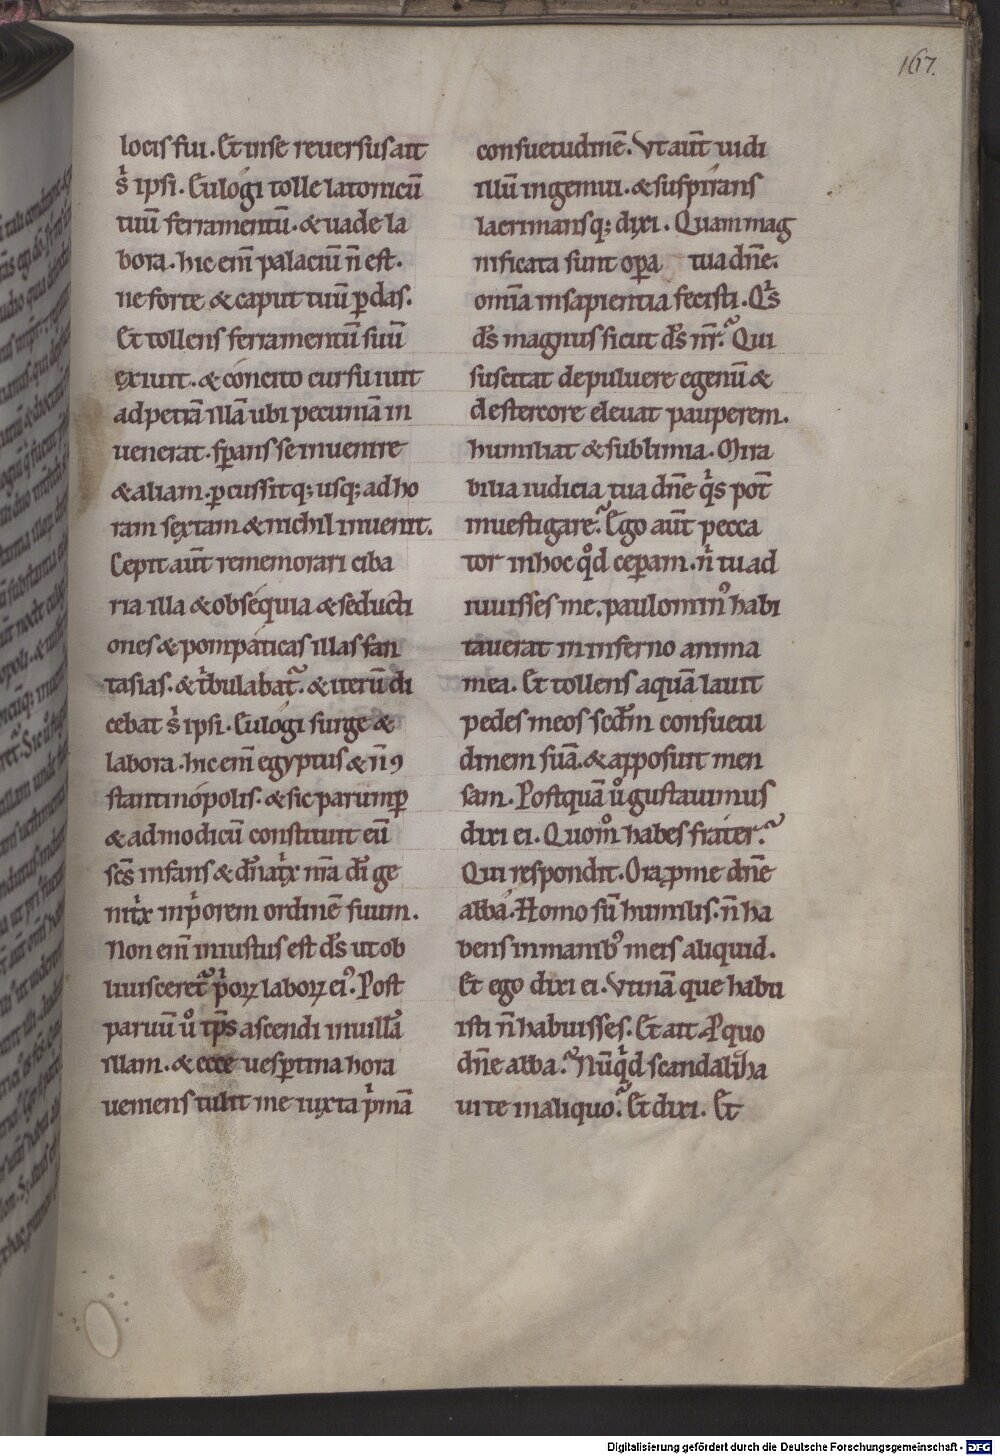 167.
locis fui. Et inse reuersus ait
s̾ ipsi. Eulogi tolle latomicū
tuū ferramentū. & uade la
bora. hic eni̅ palaciū n̅ est.
ne forte & caput tuū ꝑdas.
Et tollens ferramentū suū
exiuit. & concito cursu iuit
ad petrā illā ubi pecuniā in
uenerat. sꝑans se inuenire
& aliam. ꝑcussitq; usq; ad ho
ram sextam & nichil inuenit.
Cepit aut̅ rememorari ciba
ria illa & obsequia & seducti
ones & pompaticas illas fan
tasias. & tͥbulabat᷑. & iterū di
cebat s̾ ipsi. Eulogi surge &
labora. hic eni̅ egyptus & n̅ ꝯ
stantinopolis. & sic parūꝑ
& ad modicū constituit eū
sc̅s infans & dn̅atͥx nr̅a di̅ ge
nitͥx in pͥorem ordinē suum.
Non eni̅ iniustus est ds̅ ut ob
liuisceret᷑ pͥoꝝ laboꝝ eiꝰ. Post
paruū uͦ tp̅s ascendi in uillā
illam. & ecce uesꝑtina hora
ueniens tulit me iuxta pͥmā
consuetudinē. Vt aut̅ uidi
illū ingemui. & suspirans
lacrimansq; dixi. Quam mag
nificata sunt oꝑa tua dn̅e.
omīa in sapientia fecisti. Qͥs
ds̅ magnus sicut ds̅ nr̅? Qui
suscitat de puluere egenū &
de stercore eleuat pauperem.
humiliat & sublimia. Mira
bilia iudicia tua dn̅e qͥs pot̅
inuestigare? Ego aut̅ pecca
tor in hoc qͦd ceꝑam. nͥ tu ad
iuuisses me. paulominꝰ habi
tauerat in inferno anima
mea. Et tollens aquā lauit
pedes meos scdm̅ consuetu
dinem suā. & apposuit men
sam. Postquā uͦ gustauimus
dixi ei. Quomͦ habes frater?
Qui respondit. Ora ꝓ me dn̅e
abba. Homo sū humilis. n̅ ha
bens in manibꝰ meis aliquid.
Et ego dixi ei. Vtinā que habu
isti n̅ habuisses. Et ait. P quo
dn̅e abba? Nūqͥd scandaliͣha
ui te in aliquo? Et dixi. Et
Digitalisierung gefördert durch die Deutsche Forschungsgemeinschaft - DFG